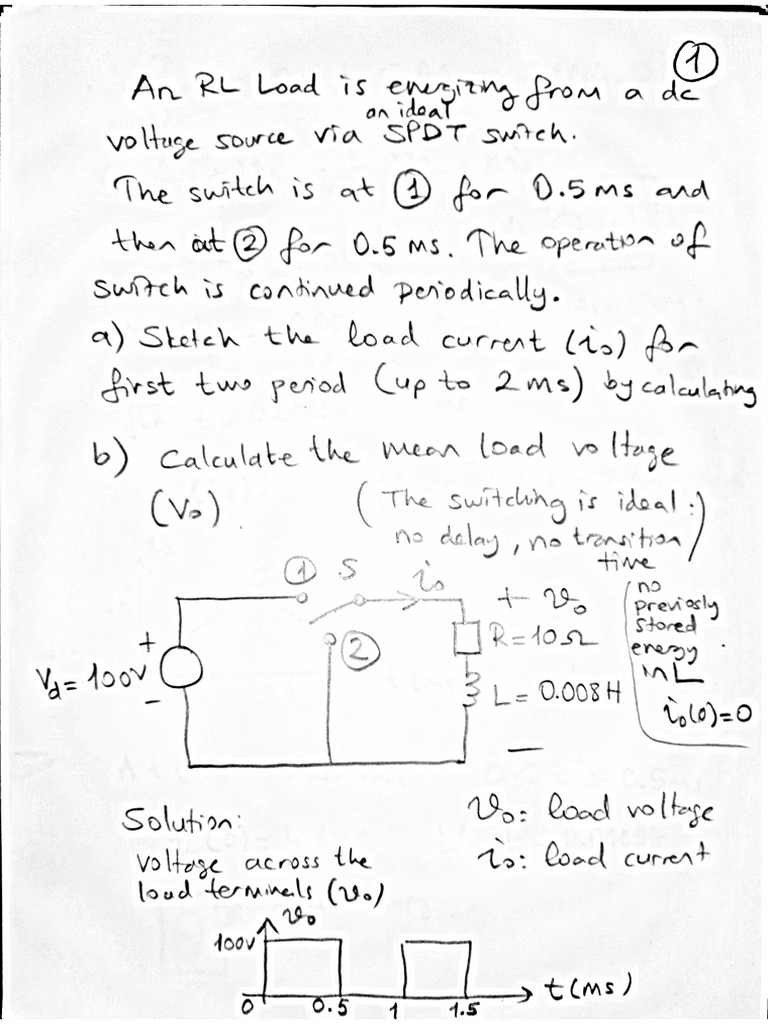 ①
An RL Load is energizing from a dc
an ideal
voltage source via SPDT switch.
The switch is at ① for 0.5 ms and
then at ② for 0.5 ms. The operation of
switch is continued periodically.
a) Sketch the load current (i₀) for
first two period (up to 2 ms) by calculating
b) Calculate the mean load voltage
(V₀) (The switching is ideal:
no delay, no transition
time)
① S i₀
+ v₀
②
R=10Ω
Vd=100V
+
-
L=0.008H
-
no
previosly
stored
energy
in L
i₀(0)=0
Solution:
voltage across the
load terminals (v₀)
v₀: load voltage
i₀: load current
v₀
100V
t(ms)
0 0.5 1 1.5